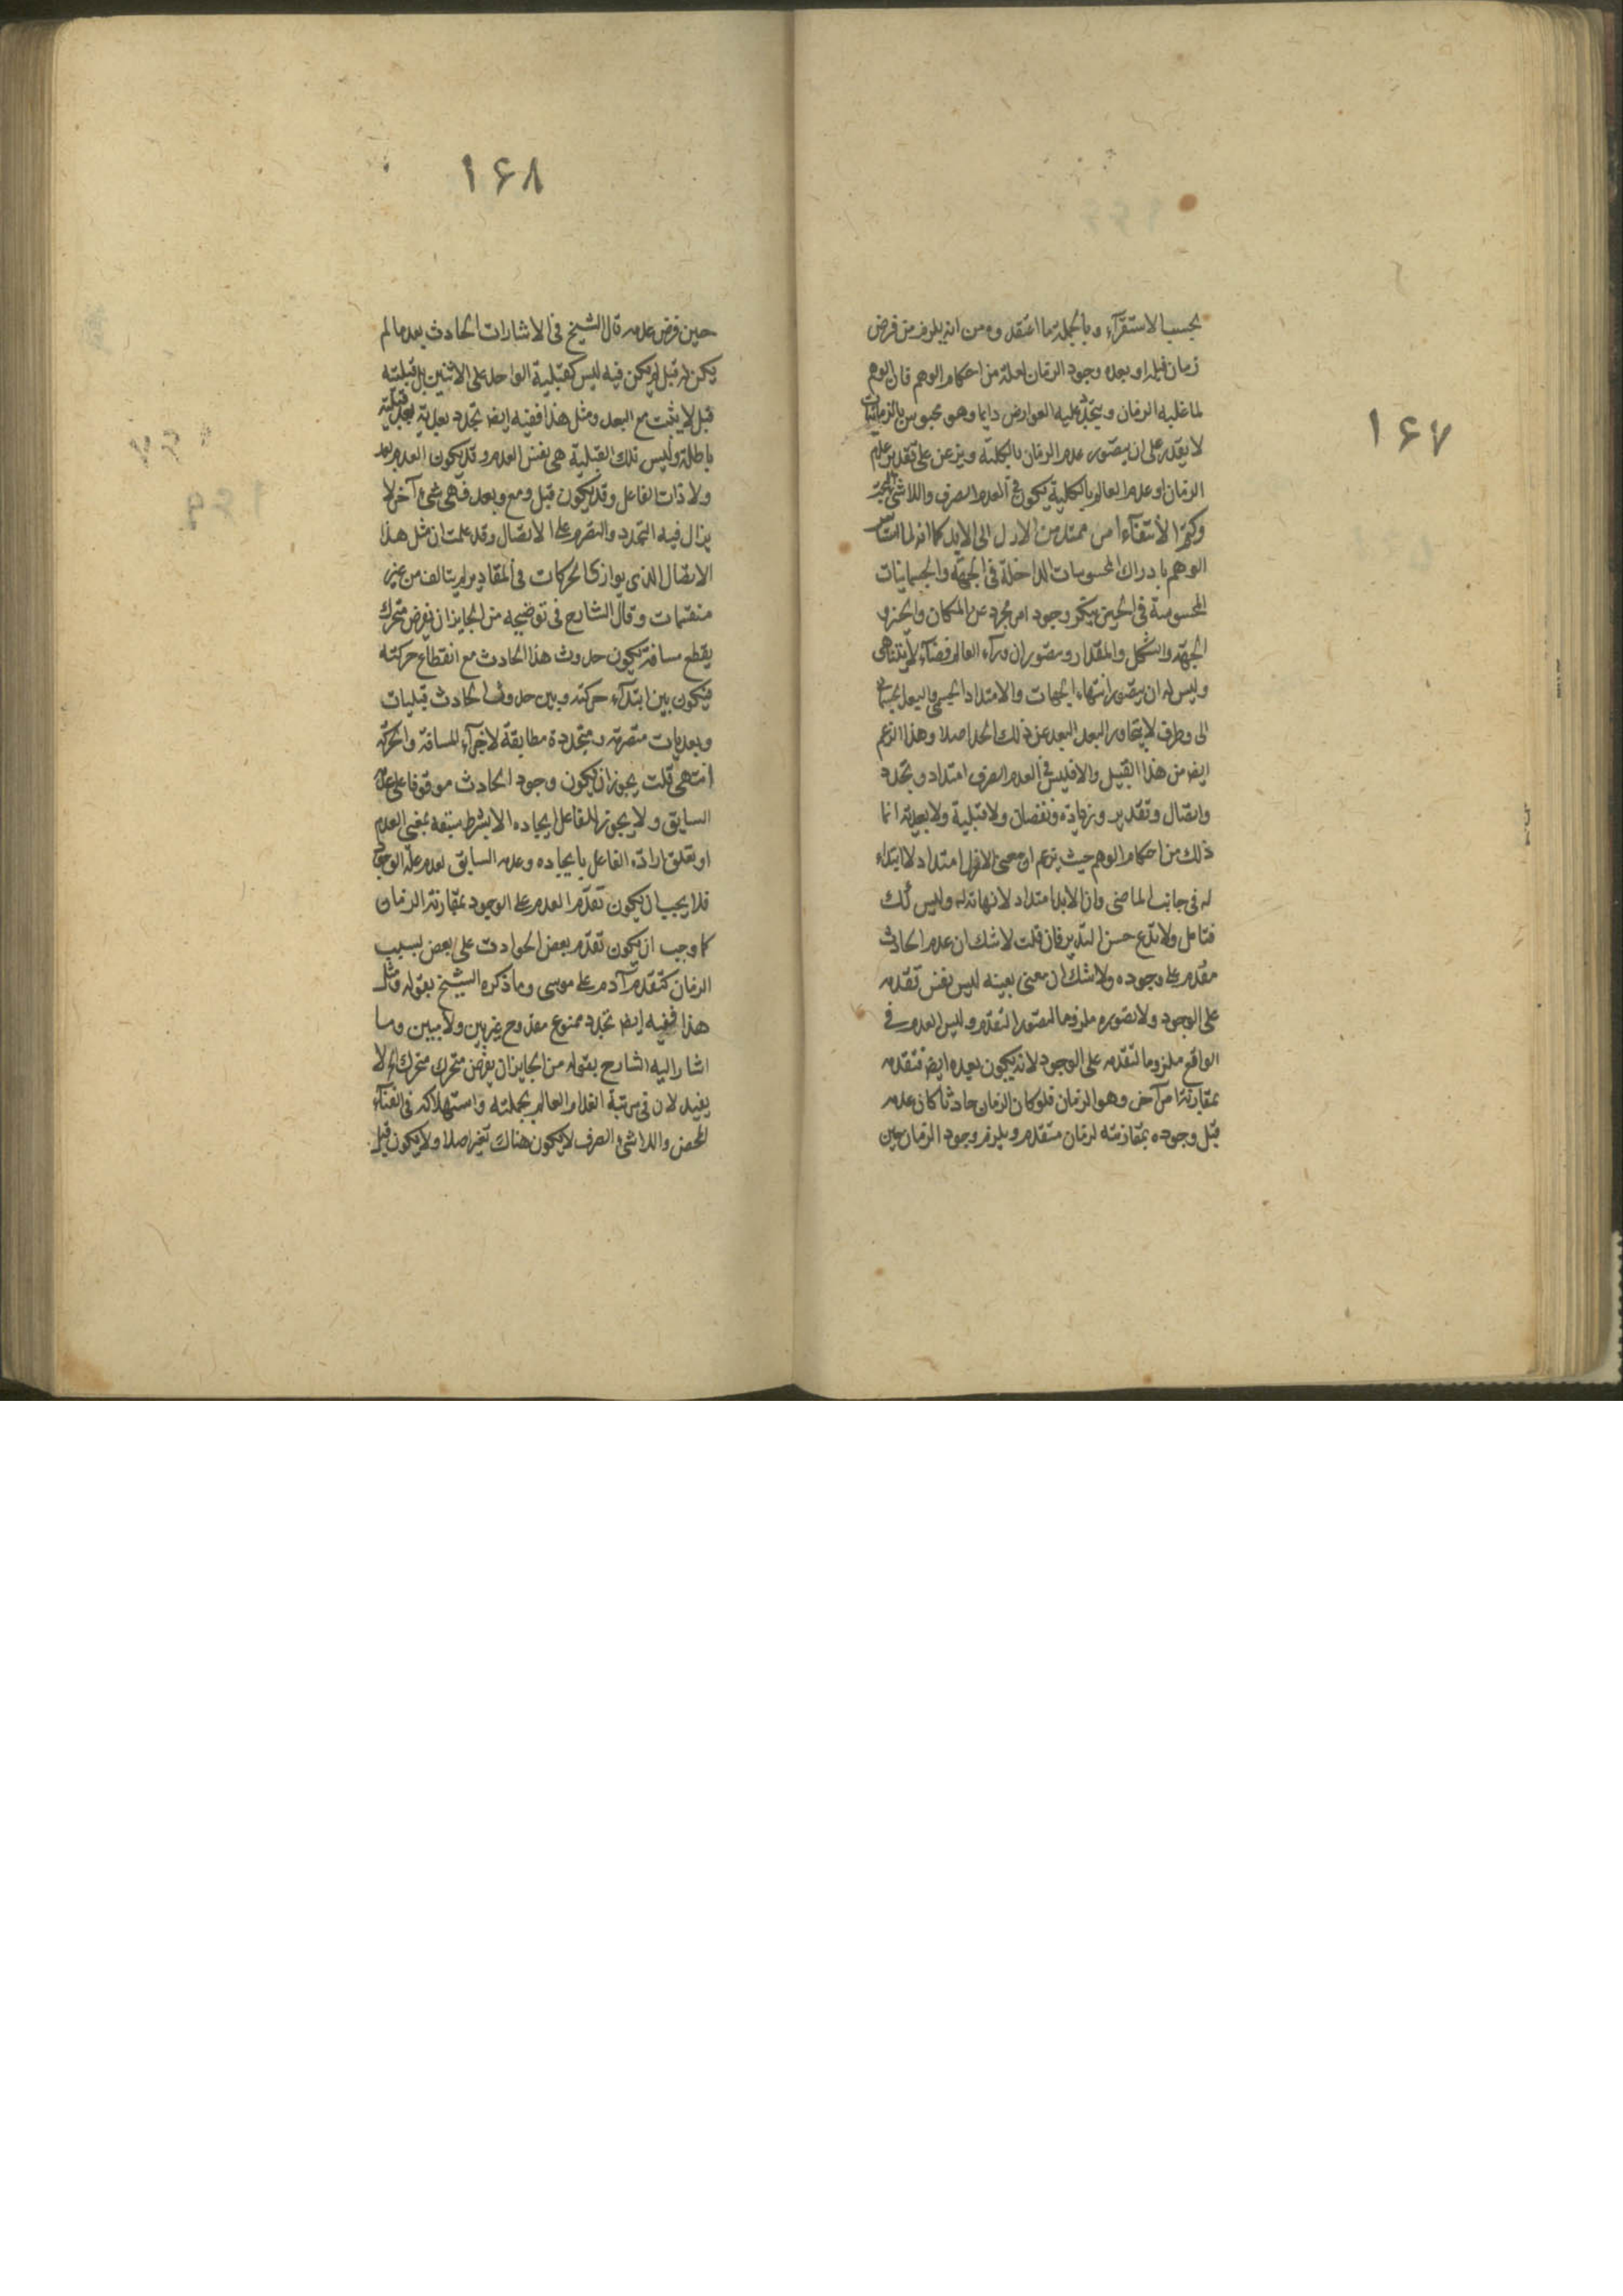 ١۶٧
بحسب الاستقرآء وبالجملة ما اعتقدوه من انه يلزم من فرض
زمان قبله او بعده وجود الزمان لعله من احكام الوهم فان الوهم
لما غلبه الزمان ويتجدد عليه العوارض دايما وهو محبوس بالزمانيات
لا يقدر على ان يتصور عدم الزمان بالكلية ويزعن على تقدير عدم
الزمان او عدم العالم بالكلية يكون في العدم الصرف واللاشئ
الأنتفآء امر ممتد من الازل الى الابد كما انه لما
الوهم بادراك المحسوسات الداخلة في الجهة والجسمانيات
المحسوسة في الحيز ينكر وجود امر مجرد عن المكان والحيز و
الجهة والشكل والمقدار ويتصور ان ورآء العالم فضآء لا يتناهى
وليس له ان يتصور انتهاء الجهات والامتداد الجسمي والبعد
الى وطرف لا يتجاوز البعد البعد عن ذلك الحد اصلا وهذا الزعم
ايضا من هذا القبيل والا فليس في العدم الصرف امتداد وتجدد
واتصال وتقدير وزيادة ونقصان ولا قبلية ولا بعدية انما
ذلك من احكام الوهم حيث يزعم ان معنى الازل امتداد لا ابتداء
له في جانب الماضي وان الابد امتداد لا نهاية له وليس كك
فتامل ولا تدع حسن التدبر فان قلت لا شك ان عدم الحادث
مقدم على وجوده ولا شك ان معنى بعينه ليس نفس تقدمه
على الوجود ولا تصوره ملزوما لتصور التقدم وليس العدم في
الواقع ملزوما لتقدمه على الوجود لانه يكون بعده ايضا فتقدمه
بمقارنة امر آخر وهو الزمان فلو كان الزمان حادثا كان عدمه
قبل وجوده بمقارنته لزمان متقدم ويلزم وجود الزمان حين
١۶٨
حين فرض عدمه قال الشيخ في الاشارات الحادث بعد ما لم
يكن له قبل لم يكن فيه ليس كقبلية الواحد على الاثنين بل قبلية
قبل لا يثبت مع البعد ومثل هذا ففيه ايضا تجدد بعدية بعد قبلية
باطلة وليس تلك القبلية هي نفس العدم وقد يكون العدم بعد
ولا ذات الفاعل وقد يكون قبل ومع وبعد فهى شئ آخر لا
يزال فيه التجدد والتصرم على الاتصال وقد علمت ان مثل هذا
الاتصال الذى يوازى الحركات في المقادير لم يتالف من غير
منقسمات وقال الشارح في توضيحه من الجايز ان نفرض متحرك
يقطع مسافة يكون حدوث هذا الحادث مع انقطاع حركته
فيكون بين ابتدآء حركته وبين حدوث الحادث قبليات
وبعديات متصرمة ومتجددة مطابقة لاجزآء المسافة والحركة
انتهى قلت يجوز ان يكون وجود الحادث موقوفا على عدمه
السابق ولا يجوز للفاعل ايجاده الا بشرط سبقه بمعنى العدم
او بتعلق ارادة الفاعل بايجاده وعدمه السابق لعدم علة الوجود
فلا يجب ان يكون تقدم العدم على الوجود بمقارنة الزمان
كما وجب ان يكون تقدم بعض الحوادث على بعض بسبب
الزمان كتقدم آدم على موسى وما ذكره الشيخ بقوله ومثل
هذا ففيه ايضا تجدد ممنوع مقدوح غير بين ولا مبين وما
اشار اليه الشارح بقوله من الجايز ان يفرض متحرك متحرك الخ لا
يفيد لان في مرتبة انعدام العالم بجملته واستهلاكه في الفنآء
المحض واللاشئ الصرف لا يكون هناك تغير اصلا ولا يكون قبل